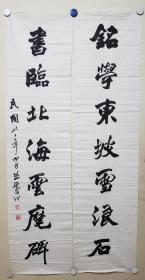 銘學東坡雪浪石
書臨北海雲麾碑
民國廿二年四月